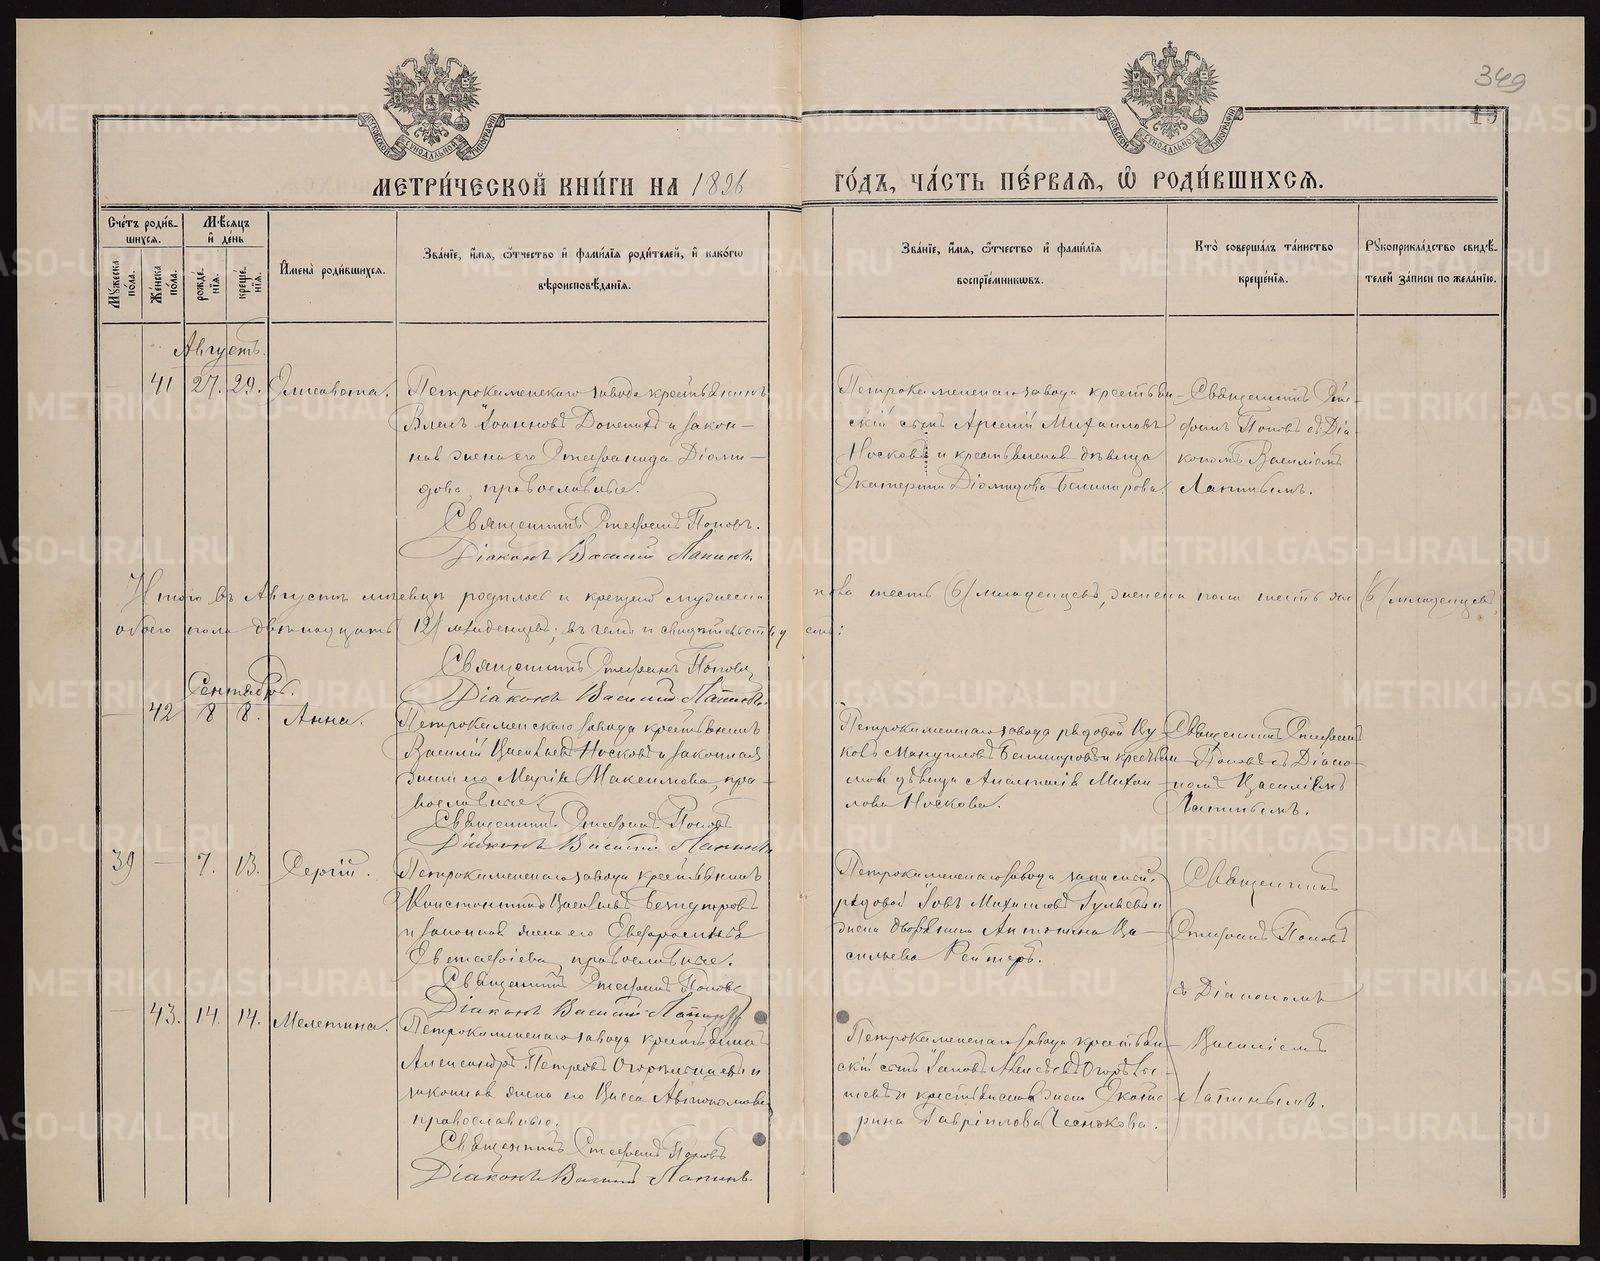 349
19
МОСКОВСКОЙ СУНОДАЛЬНОЙ ТИПОГРАФІИ
МОСКОВСКОЙ СУНОДАЛЬНОЙ ТИПОГРАФІИ
МЕТРИ́ЧЕСКОЙ КНИ́ГИ НА 1896
ГО́ДЪ, ЧА́СТЬ ПЕ́РВАЯ, Ѽ РОДИ́ВШИХСЯ.
Сче́тъ роди́вшихся.
Мꙋ́жеска по́ла.
Же́нска по́ла.
Мѣ́сяцъ и҆ де́нь
рожде́нїя.
креще́нїя.
И҆мена̀ роди́вшихся.
Зва́нїе, и҆́мя, ѻ҆́тчество и҆ фами́лїя роди́телей, и҆ како́гѡ вѣроисповѣ́данїя.
Зва́нїе, и҆́мя, ѻ҆́тчество и҆ фами́лїя воспрїе́мникѡвъ.
Кто̀ соверша́лъ та́инство креще́нїя.
Рꙋкоприкла́дство свидѣ́телей за́писи по жела́нїю.
Августъ.
41 27. 29. Елисавета.
Петрокаменскаго завода крестьянинъ
Іоанновъ и закон-
ная жена его Стефанида Діоми-
дова, православные.
Священникъ Стефанъ Поповъ.
Діаконъ Василій Лапинъ.
Петрокаменскаго завода крестьян-
скій сынъ Арсеній Михаиловъ
Носковъ и крестьянская дѣвица
Екатерина Діомидова
Священникъ Сте-
фанъ Поповъ съ Діа-
кономъ Василіемъ
Лапинымъ.
Итого въ Августѣ мѣсяцѣ родилось и крещено мужеска пола шесть (6) младенцевъ, женска пола шесть же (6) младенцевъ,
обоего пола двѣнадцать (12) младенцевъ; въ чемъ и свидѣтельствуемъ:
Священникъ Стефанъ Поповъ
Діаконъ Василій Лапинъ.
Сентябрь.
42 8 8. Анна.
Петрокаменскаго завода крестьянинъ
Василій Васильевъ Носковъ и законная
жена его Марія Максимова, пра-
вославные.
Священникъ Стефанъ Поповъ
Діаконъ Василій Лапинъ
Петрокаменскаго завода рядовой
Мануиловъ и крестьян-
дѣвица Анастасія Михаи-
лова Носкова.
Священникъ Стефанъ
Поповъ съ Діако-
номъ Василіемъ
Лапинымъ.
39 7. 13. Сергій.
Петрокаменскаго завода крестьянинъ
Константинъ Васильевъ
и законная жена его Евфросинія
Евстафіева, православные.
Священникъ Стефанъ Поповъ
Діаконъ Василій Лапинъ
Петрокаменскаго завода запасный
рядовой Іовъ Михаиловъ и
жена Антонина Ва-
сильева
Священникъ
Стефанъ Поповъ
съ Діакономъ
43. 14. 14. Мелетина.
Петрокаменскаго завода крестьянинъ
Александръ Петровъ и
законная жена его Васса Автономова,
православные.
Священникъ Стефанъ Поповъ
Діаконъ Василій Лапинъ.
Петрокаменскаго завода крестьян-
скій сынъ Алексѣевъ
и крестьянская жена Екате-
рина Гавріилова Чеснокова.
Василіемъ
Лапинымъ.
METRIKI.GASO-URAL.RU